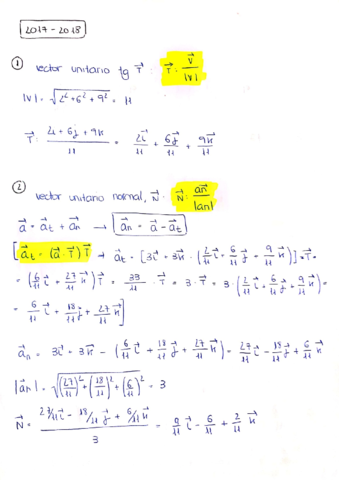 2017 - 2018
① vector unitario tg T⃗ : T⃗ = v⃗/|v|
|v| = √(2² + 6² + 9²) = 11
T⃗ : (2i + 6j + 9k)/11 = 2i⃗/11 + 6j⃗/11 + 9k⃗/11
② vector unitario normal, N⃗ : N⃗ = an⃗/|an|
a⃗ = a⃗t + a⃗n → a⃗n = a⃗ - a⃗t
[a⃗t = (a⃗ · T⃗) T⃗ → a⃗t = [3i⃗ + 3k⃗ · (2/11 i⃗ + 6/11 j⃗ + 9/11 k⃗)] · T⃗ =
= (6/11 i⃗ + 27/11 k⃗) T⃗ = 33/11 · T⃗ = 3 · T⃗ = 3 · (2/11 i⃗ + 6/11 j⃗ + 9/11 k⃗) =
= 6/11 i⃗ + 18/11 j⃗ + 27/11 k⃗]
a⃗n = 3i⃗ + 3k⃗ - (6/11 i⃗ + 18/11 j⃗ + 27/11 k⃗) = 27/11 i⃗ - 18/11 j⃗ + 6/11 k⃗
|a⃗n| = √((27/11)² + (18/11)² + (6/11)²) = 3
N⃗ = (27/11 i⃗ - 18/11 j⃗ + 6/11 k⃗)/3 = 9/11 i⃗ - 6/11 + 2/11 k⃗